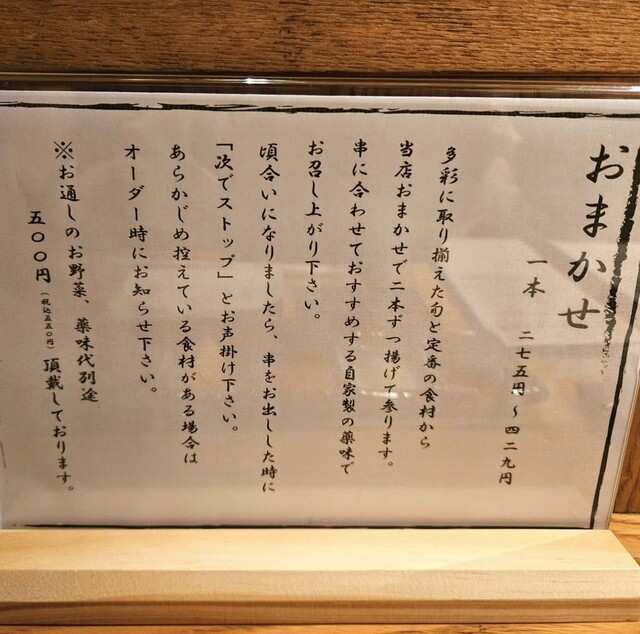 おまかせ
一本 二七五円～四二九円
多彩に取り揃えた旬と定番の食材から
当店おまかせで二本ずつ揚げて参ります。
串に合わせておすすめする自家製の薬味で
お召し上がり下さい。
頃合いになりましたら、串をお出しした時に
「次でストップ」とお声掛け下さい。
あらかじめ控えている食材がある場合は
オーダー時にお知らせ下さい。
※お通しのお野菜、薬味代別途
五〇〇円（税込五五〇円）頂戴しております。